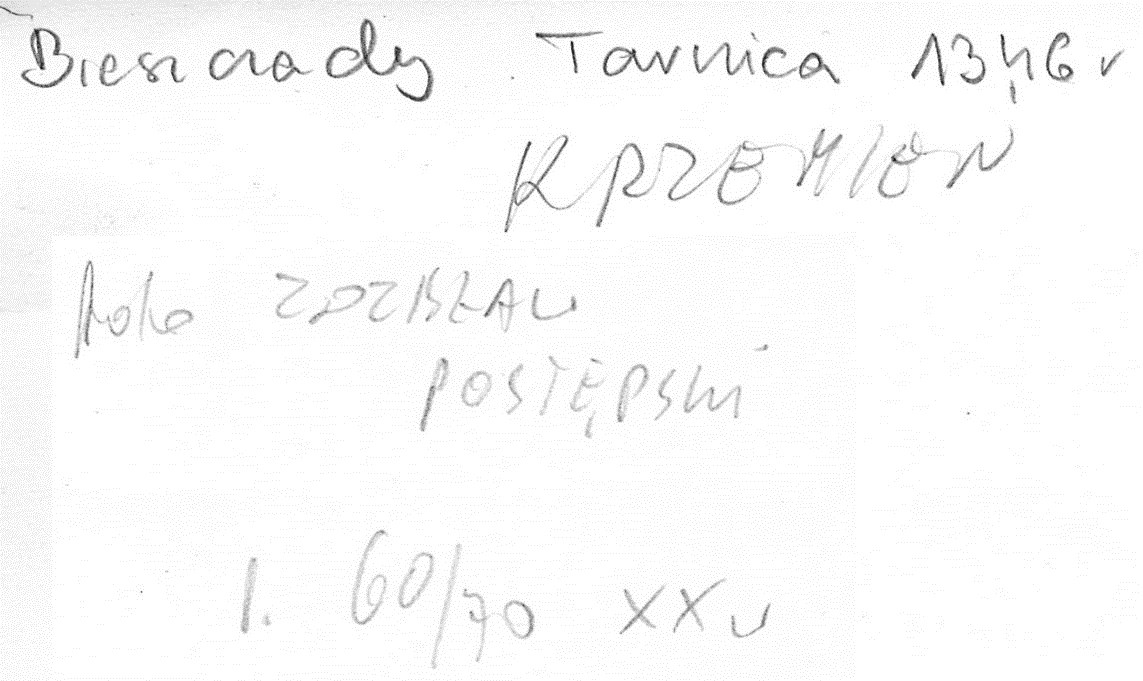 Bieszczady Tarnica 1346 r
KRZEMIEŃ
foto ZDZISŁAW
POSTĘPSKI
l. 60/70 XX w